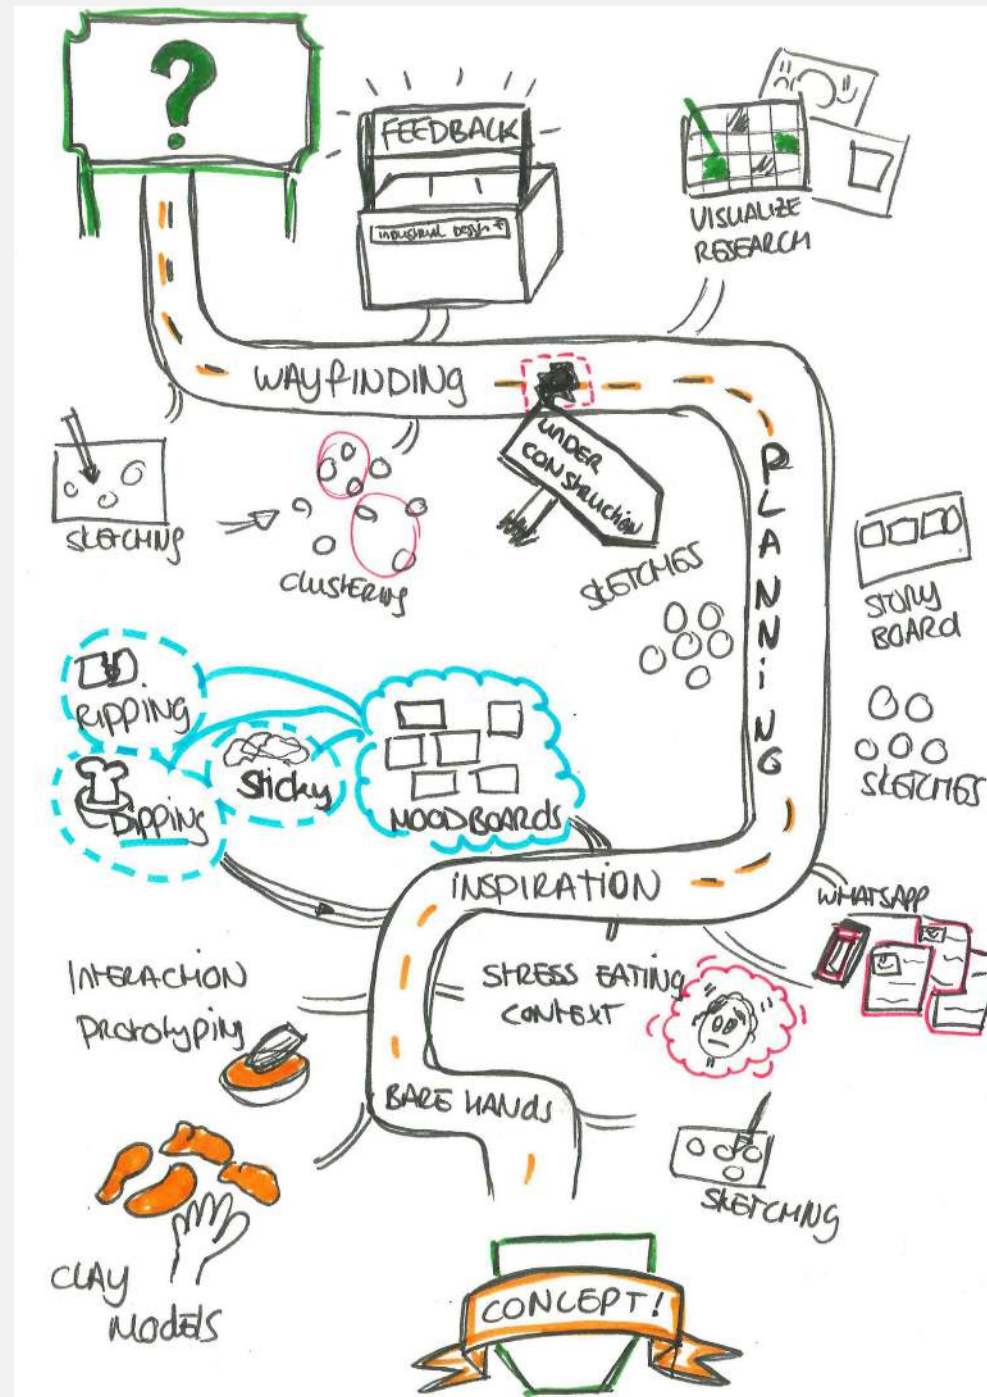 ?
FEEDBACK
INDUSTRIAL DESIGN
VISUALIZE
RESEARCH
WAYFINDING
UNDER
CONSTRUCTION
PLANNING
SKETCHING
CLUSTERING
SKETCHES
STORY
BOARD
SKETCHES
RIPPING
Sticky
DIPPING
MOODBOARDS
INSPIRATION
WHATSAPP
INTERACTION
PROTOTYPING
STRESS EATING
CONTEXT
BARE HANDS
SKETCHING
CLAY
MODELS
CONCEPT!